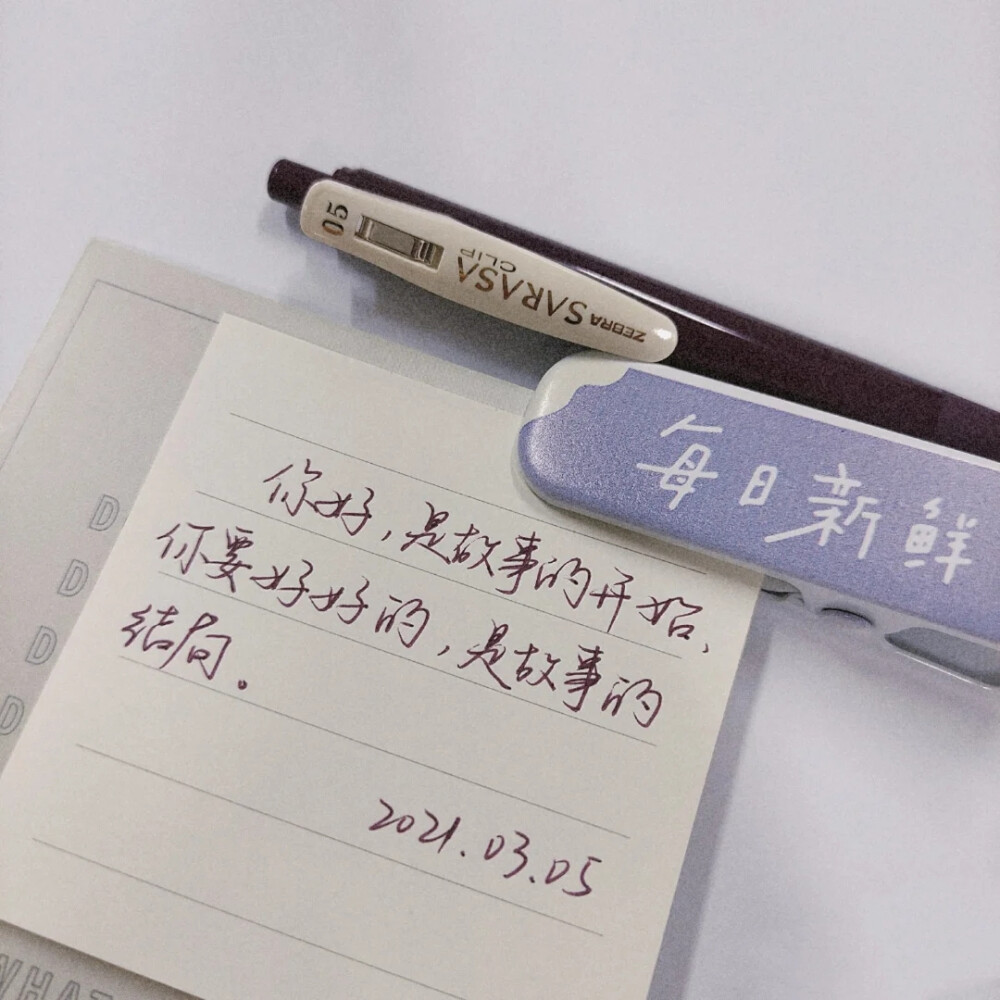 05
ZEBRA SARASA
CLIP
每日新鲜
你好,是故事的开始、
你要好好的,是故事的
结局。
2021.03.05
D
D
D
D
WHAT